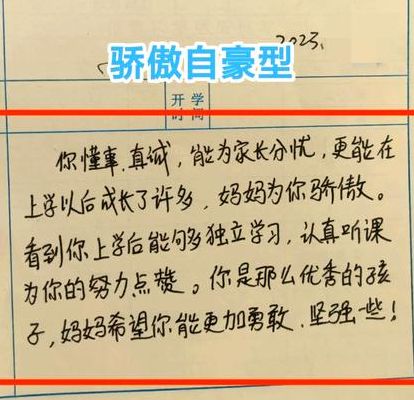 2023.
骄傲自豪型
开学
时间
你懂事、真诚，能为家长分忧，更能在
上学以后成长了许多，妈妈为你骄傲。
看到你上学后能够多独立学习，认真听课
为你的努力点赞。你是那么优秀的孩
子，妈妈希望你能更加勇敢、坚强一些！